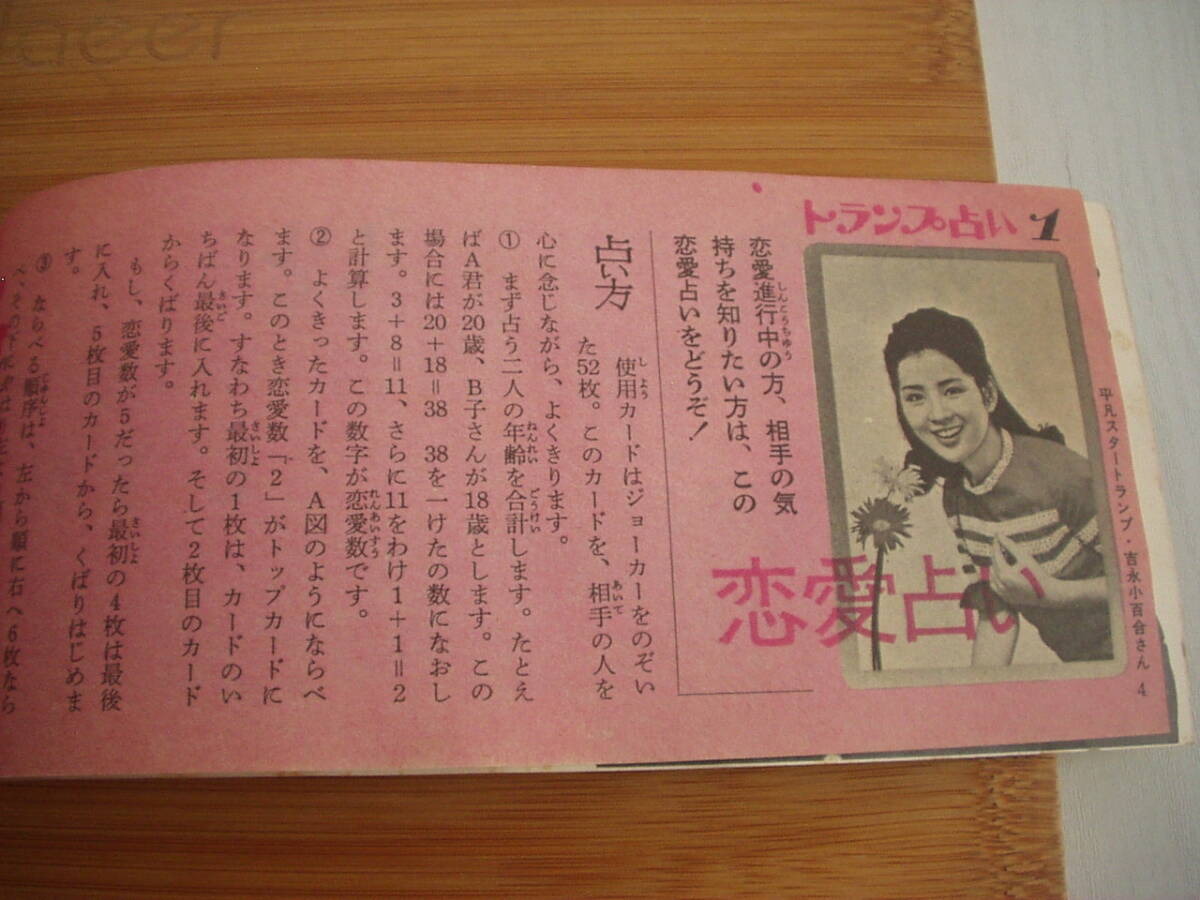 トランプ占い 1
平凡スタートランプ・吉永小百合さん 4
恋愛占い
恋愛進行中の方、相手の気
持ちを知りたい方は、この
恋愛占いをどうぞ！
占い方
使用カードはジョーカーをのぞい
た52枚。このカードを、相手の人を
心に念じながら、よくきります。
① まず占う二人の年齢を合計します。たとえ
ばA君が20歳、B子さんが18歳とします。この
場合には20＋18＝38 38を一けたの数になおし
ます。3＋8＝11、さらに11をわけ1＋1＝2
と計算します。この数字が恋愛数です。
② よくきったカードを、A図のようにならべ
ます。このとき恋愛数「2」がトップカードに
なります。すなわち最初の1枚は、カードのい
ちばん最後に入れます。そして2枚目のカード
からくばります。
もし、恋愛数が5だったら最初の4枚は最後
に入れ、5枚目のカードから、くばりはじめま
す。
③ ならべる順序は、左から順に右へ6枚なら